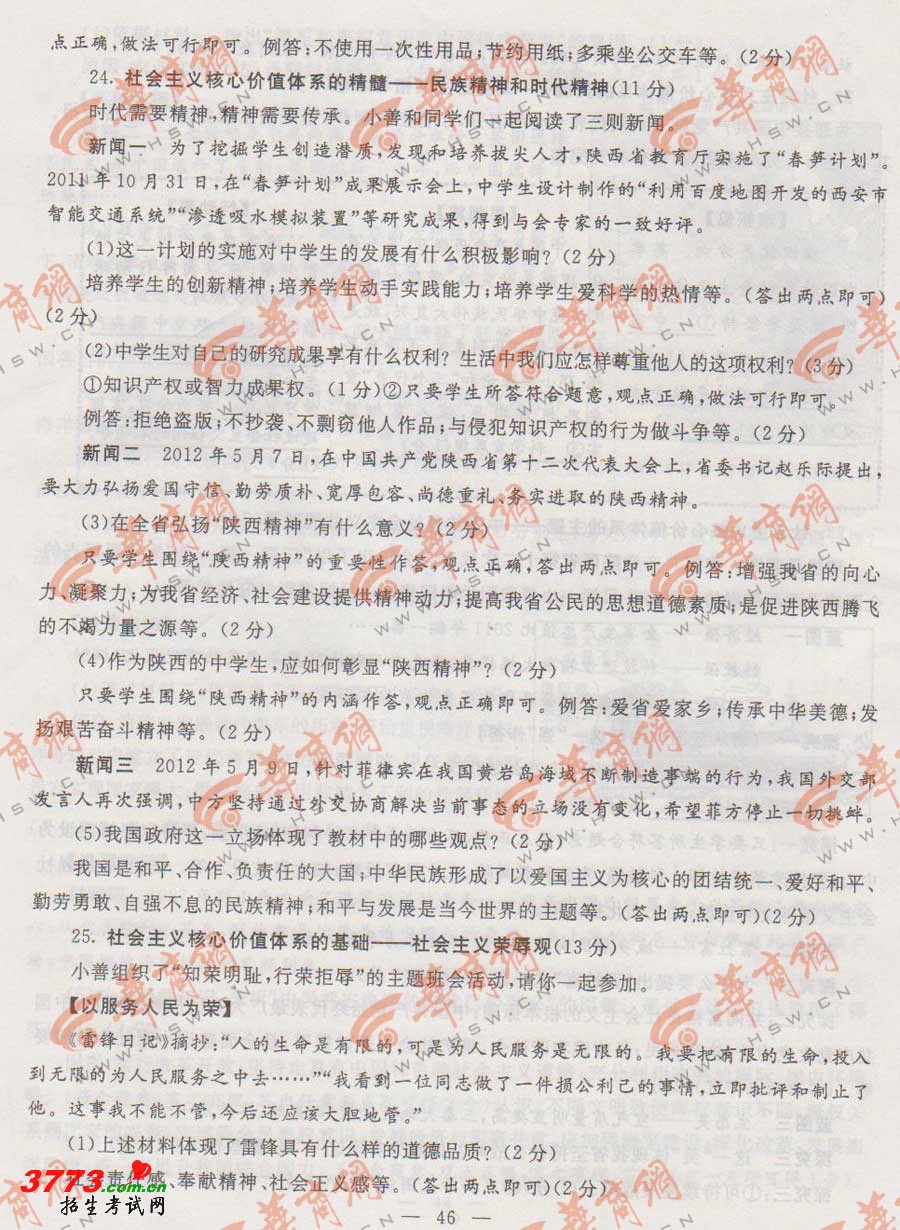 点正确,做法可行即可。例答:不使用一次性用品;节约用纸;多乘坐公交车等。(2分)
24. 社会主义核心价值体系的精髓——民族精神和时代精神(11分)
时代需要精神,精神需要传承。小善和同学们一起阅读了三则新闻。
新闻一 为了挖掘学生创造潜质,发现和培养拔尖人才,陕西省教育厅实施了“春笋计划”。
2011年10月31日,在“春笋计划”成果展示会上,中学生设计制作的“利用百度地图开发的西安市
智能交通系统”“渗透吸水模拟装置”等研究成果,得到与会专家的一致好评。
(1)这一计划的实施对中学生的发展有什么积极影响?(2分)
培养学生的创新精神;培养学生动手实践能力;培养学生爱科学的热情等。(答出两点即可)
(2分)
(2)中学生对自己的研究成果享有什么权利?生活中我们应怎样尊重他人的这项权利?(3分)
①知识产权或智力成果权。(1分)②只要学生所答符合题意,观点正确,做法可行即可。
例答:拒绝盗版;不抄袭、不剽窃他人作品;与侵犯知识产权的行为做斗争等。(2分)
新闻二 2012年5月7日,在中国共产党陕西省第十二次代表大会上,省委书记赵乐际提出,
要大力弘扬爱国守信、勤劳质朴、宽厚包容、尚德重礼、务实进取的陕西精神。
(3)在全省弘扬“陕西精神”有什么意义?(2分)
只要学生围绕“陕西精神”的重要性作答,观点正确,答出两点即可。例答:增强我省的向心
力、凝聚力;为我省经济、社会建设提供精神动力;提高我省公民的思想道德素质;是促进陕西腾飞
的不竭力量之源等。(2分)
(4)作为陕西的中学生,应如何彰显“陕西精神”?(2分)
只要学生围绕“陕西精神”的内涵作答,观点正确即可。例答:爱省爱家乡;传承中华美德;发
扬艰苦奋斗精神等。(2分)
新闻三 2012年5月9日,针对菲律宾在我国黄岩岛海域不断制造事端的行为,我国外交部
发言人再次强调,中方坚持通过外交协商解决当前事态的立场没有变化,希望菲方停止一切挑衅。
(5)我国政府这一立场体现了教材中的哪些观点?(2分)
我国是和平、合作、负责任的大国;中华民族形成了以爱国主义为核心的团结统一、爱好和平、
勤劳勇敢、自强不息的民族精神;和平与发展是当今世界的主题等。(答出两点即可)(2分)
25. 社会主义核心价值体系的基础——社会主义荣辱观(13分)
小善组织了“知荣明耻,行荣拒辱”的主题班会活动,请你一起参加。
【以服务人民为荣】
《雷锋日记》摘抄:“人的生命是有限的,可是为人民服务是无限的。我要把有限的生命,投入
到无限的为人民服务之中去……”“我看到一位同志做了一件损公利己的事情,立即批评和制止了
他。这事我不能不管,今后还应该大胆地管。”
(1)上述材料体现了雷锋具有什么样的道德品质?(2分)
社会责任感、奉献精神、社会正义感等。(答出两点即可)(2分)
3773.com.cn
招生考试网
— 46 —
华商网
WWW.HSW.CN